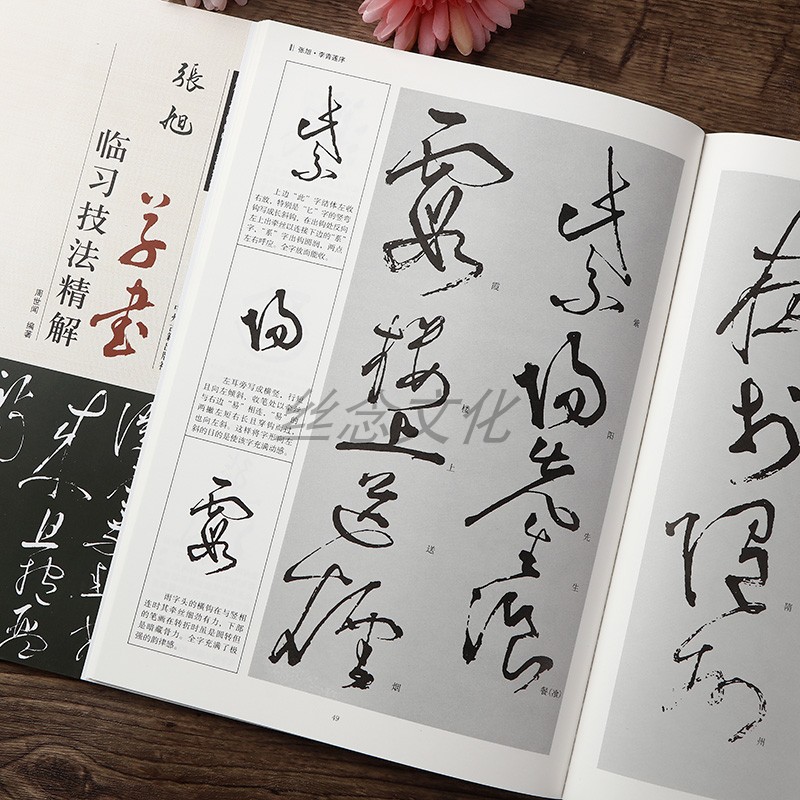 張旭
草書
临习技法精解
周世闻 编著
张旭·李青莲序
紫
上边“此”字结体左收
右放，特别是“匕”字的竖弯
钩写成长斜钩，在出钩处反向
左上出牵丝以连接下边的“系”
字，“系”字出钩圆润，两点
左右呼应。全字放而能收。
陽
左耳旁写成横竖，行短
且向左倾斜，收笔处以
与右边“易”相连，“易”
两撇左短右长且穿钩而
也向左斜。这样将字形向左
斜的目的是使该字充满动感。
霞
雨字头的横钩在与竖相
连时其牵丝细劲有力，下部
的笔画在转折时虽是圆转但
是暗藏骨力。全字充满了极
强的韵律感。
紫陽先生飡
紫
阳
先
生
餐(飡)
霞樓上送煙
霞
楼
上
送
烟
隋
州
49
丝念文化